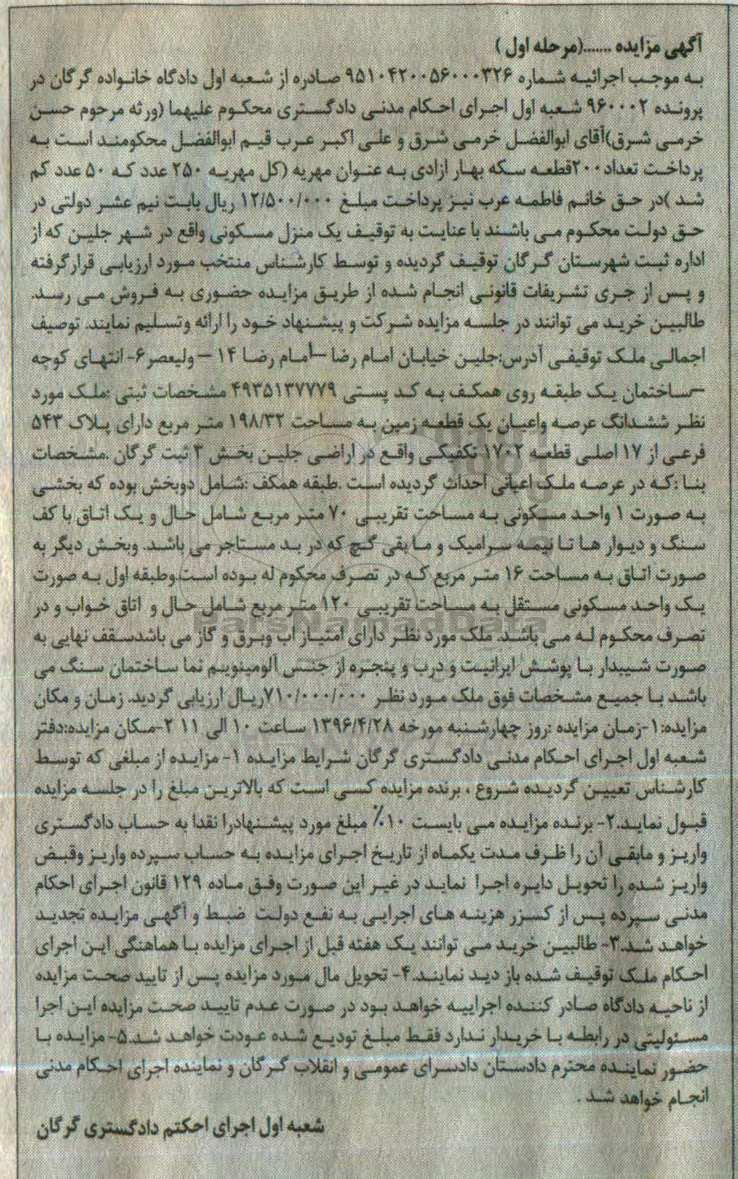 آگهی مزایده .......(مرحله اول )
به موجب اجرائیه شماره ۹۵۱۰۴۲۰۰۵۶۰۰۰۳۲۶ صادره از شعبه اول دادگاه خانواده گرگان در
پرونده ۹۶۰۰۰۲ شعبه اول اجرای احکام مدنی دادگستری محکوم علیهما (ورثه مرحوم حسن
خرمی شرق)آقای ابوالفضل خرمی شرق و علی اکبر عرب قیم ابوالفضل محکومند است به
پرداخت تعداد۲۰۰قطعه سکه بهار ازادی به عنوان مهریه (کل مهریه ۲۵۰ عدد که ۵۰ عدد کم
شد )در حق خانم فاطمه عرب نیز پرداخت مبلغ ۱۲/۵۰۰/۰۰۰ ریال بابت نیم عشر دولتی در
حق دولت محکوم می باشند با عنایت به توقیف یک منزل مسکونی واقع در شهر جلین که از
اداره ثبت شهرستان گرگان توقیف گردیده و توسط کارشناس منتخب مورد ارزیابی قرارگرفته
و پس از جری تشریفات قانونی انجام شده از طریق مزایده حضوری به فروش می رسد.
طالبین خرید می توانند در جلسه مزایده شرکت و پیشنهاد خود را ارائه وتسلیم نمایند. توصیف
اجمالی ملک توقیفی آدرس:جلین خیابان امام رضا –امام رضا ۱۴ –ولیعصر۶- انتهای کوچه
–ساختمان یک طبقه روی همکف به کد پستی ۴۹۳۵۱۳۷۷۷۹ مشخصات ثبتی :ملک مورد
نظر ششدانگ عرصه واعیان یک قطعه زمین به مساحت ۱۹۸/۳۲ متر مربع دارای پلاک ۵۴۳
فرعی از ۱۷ اصلی قطعه ۱۷۰۲ تکفیکی واقع در اراضی جلین بخش ۳ ثبت گرگان .مشخصات
بنا :که در عرصه ملک اعیانی احداث گردیده است .طبقه همکف :شامل دوبخش بوده که بخشی
به صورت ۱ واحد مسکونی به مساحت تقریبی ۷۰ متر مربع شامل حال و یک اتاق با کف
سنگ و دیوار ها تا نیمه سرامیک و ما بقی گچ که در بد مستاجر می باشد. وبخش دیگر به
صورت اتاق به مساحت ۱۶ متر مربع که در تصرف محکوم له بوده است.وطبقه اول به صورت
یک واحد مسکونی مستقل به مساحت تقریبی ۱۲۰ متر مربع شامل حال و اتاق خواب و در
تصرف محکوم له می باشد. ملک مورد نظر دارای امتیاز اب وبرق و گاز می باشدسقف نهایی به
صورت شیبدار با پوشش ایرانیت و درب و پنجره از جنس آلومینویم نما ساختمان سنگ می
باشد با جمیع مشخصات فوق ملک مورد نظر ۷۱۰/۰۰۰/۰۰۰ریال ارزیابی گردید. زمان و مکان
مزایده:۱-زمان مزایده :روز چهارشنبه مورخه ۱۳۹۶/۴/۲۸ ساعت ۱۰ الی ۱۱ ۲-مکان مزایده:دفتر
شعبه اول اجرای احکام مدنی دادگستری گرگان شرایط مزایده ۱- مزایده از مبلغی که توسط
کارشناس تعیین گردیده شروع ، برنده مزایده کسی است که بالاترین مبلغ را در جلسه مزایده
قبول نماید.۲- برنده مزایده می بایست ۱۰٪ مبلغ مورد پیشنهادرا نقدا به حساب دادگستری
واریز و مابقی آن را ظرف مدت یکماه از تاریخ اجرای مزایده به حساب سپرده واریز وقبض
واریز شده را تحویل دایره اجرا نماید در غیر این صورت وفق ماده ۱۲۹ قانون اجرای احکام
مدنی سپرده پس از کسزر هزینه های اجرایی به نفع دولت ضبط و آگهی مزایده تجدید
خواهد شد.۳- طالبین خرید می توانند یک هفته قبل از اجرای مزایده با هماهنگی این اجرای
احکام ملک توقیف شده باز دید نمایند.۴- تحویل مال مورد مزایده پس از تایید صحت مزایده
از ناحیه دادگاه صادر کننده اجراییه خواهد بود در صورت عدم تایید صحت مزایده این اجرا
مسئولیتی در رابطه با خریدار ندارد فقط مبلغ تودیع شده عودت خواهد شد.۵- مزایده با
حضور نماینده محترم دادستان دادسرای عمومی و انقلاب گرگان و نماینده اجرای احکام مدنی
انجام خواهد شد .
شعبه اول اجرای احکتم دادگستری گرگان
ParsNamadData